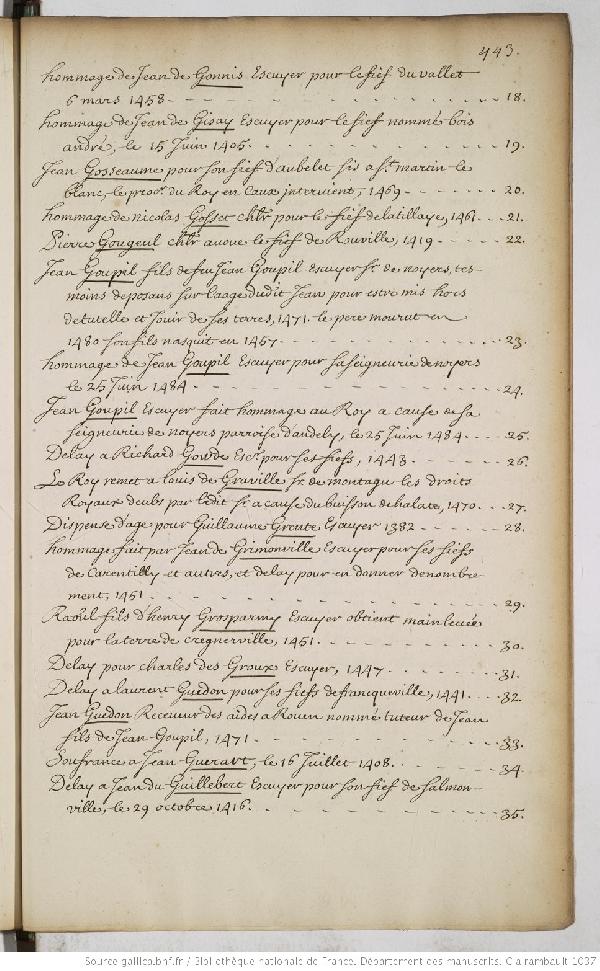 443.
hommage de Jean de Gonnis Escuyer pour le fief du vallet
6 mars 1458. - - - - - - - - - - 18.
hommage de Jean de Gisay Escuyer pour le fief nommé bois
andré, le 15 Juin 1405. - - - - - - - - 19.
Jean Gosseaume pour son fief d'aubelet sis a St. martin le
blanc, le procr. du Roy en Caux intervient, 1469 - - - - - 20.
hommage de nicolas Gosset chlr pour le fief de latillaye, 1461. - - - 21.
Pierre Gougeul chlr avoue le fief de Rouville, 1419 - - - - - 22.
Jean Goupil fils de feu Jean Goupil escuyer Sr. de noyers, tes-
moins deposans sur laage dudit Jean pour estre mis hors
de tutelle et Jouir de ses terres, 1471. le pere mourut en
1480 son fils nasquit en 1457 - - - - - - 23.
hommage de Jean Goupil Escuyer pour sa seigneurie de noyers
le 25 Juin 1484 - - - - - - - - - 24.
Jean Goupil Escuyer fait hommage au Roy a cause de sa
seigneurie de noyers parroise d'andely, le 25 Juin 1484. - - - 25.
Delay a Richard Gowde Escr. pour ses fiefs, 1443 - - - - 26.
Le Roy remet a louis de Graville Sr. de montagu les droits
Royaux deubs par ledit Sr. a cause du buisson de halate, 1470. - - 27.
Dispense d'age pour Guillaume Grente Escuyer 1382 - - - - - 28.
hommage fait par Jean de Grimonville Escuyer pour ses fiefs
de Carentilly et autres, et delay pour en donner denombre-
ment, 1451 - - - - - - - - - 29.
Raoul fils d'henry Grosparmy Escuyer obtient mainlevée
pour la terre de cregnerville, 1451. - - - - - - 30.
Delay pour charles des Groux Escuyer, 1447. - - - - - 31.
Delay a laurent Guedon pour ses fiefs de francqueville, 1441. - - - 32.
Jean Guedon Receveur des aides a Rouen nommé tuteur de Jean
fils de Jean Goupil, 1471. - - - - - - - - 33.
Soufrance a Jean Guerart, le 16 Juillet 1408. - - - - - 34.
Delay a Jean du Guillebert Escuyer pour son fief de salmon-
ville, le 29 octobre 1416. - - - - - - - - 35.
Source gallica.bnf.fr / Bibliothèque nationale de France. Département des manuscrits. Clairambault 1037